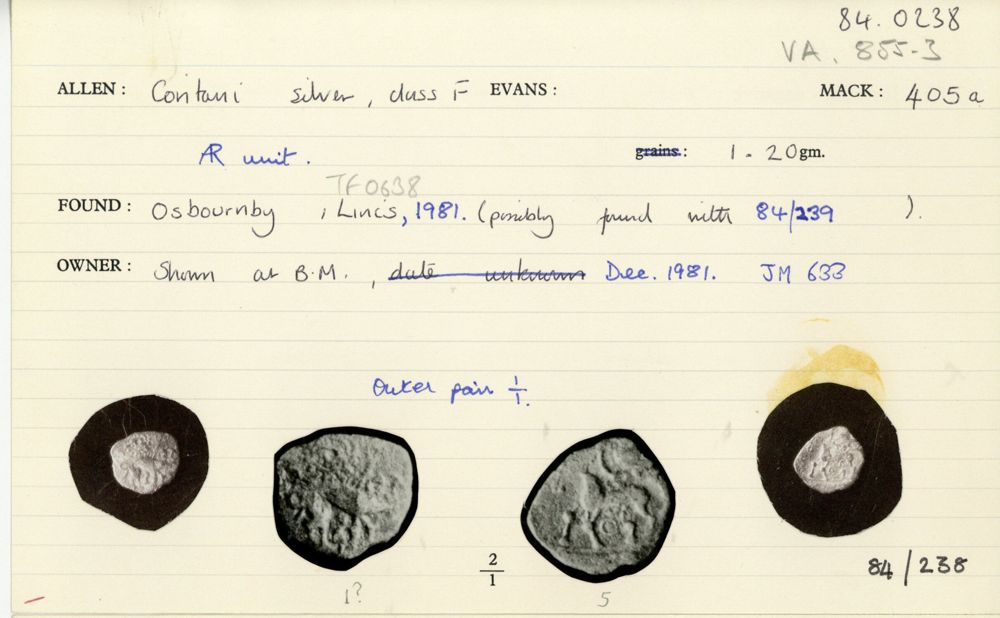 84.0238
VA. 855-3
ALLEN: Coritani silver, class F EVANS: MACK: 405a
AR unit. grains: 1.20 gm.
TF0638
FOUND: Osbournby, Lincs, 1981. (possibly found with 84/239).
OWNER: Shown at B.M., date unknown Dec. 1981. JM 633
Outer pair 1/1.
2/1
84/238
1? 5